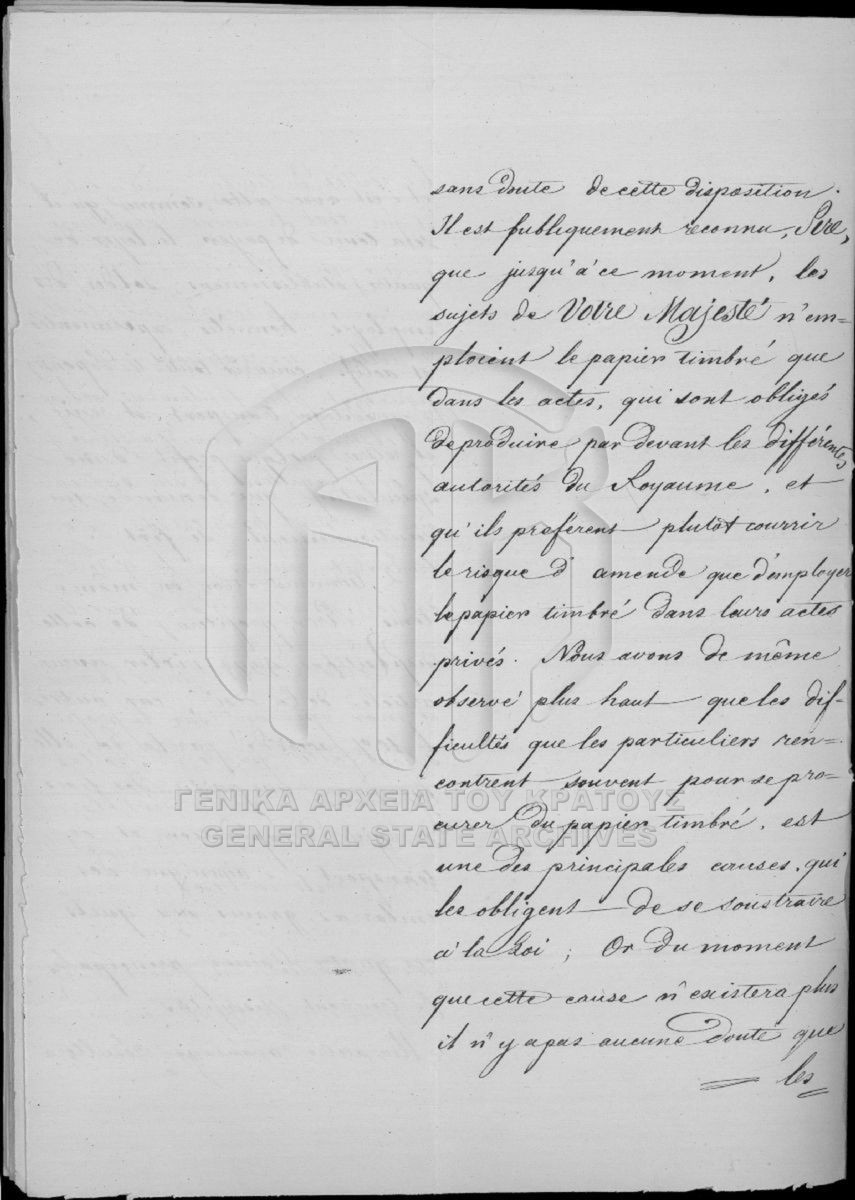 sans doute de cette disposition.
Il est publiquement reconnu, Sire,
que jusqu'à ce moment, les
sujets de Votre Majesté n'em=
ploient le papier timbré que
dans les actes, qui sont obligés
de produire par devant les différentes
autorités du Royaume, et
qu'ils préferent plutôt courrir
le risque d'amende que d'employer
le papier timbré dans leurs actes
privés. Nous avons de même
observé plus haut que les dif-
ficultés que les particuliers ren-
contrent souvent pour se pro-
ΓΕΝΙΚΑ ΑΡΧΕΙΑ ΤΟΥ ΚΡΑΤΟΥΣ
curer du papier timbré, est
GENERAL STATE ARCHIVES
une des principales causes, qui
les obligent de se soustraire
à la Loi; Or du moment
que cette cause n'existera plus
il n'y a pas aucune doute que
les